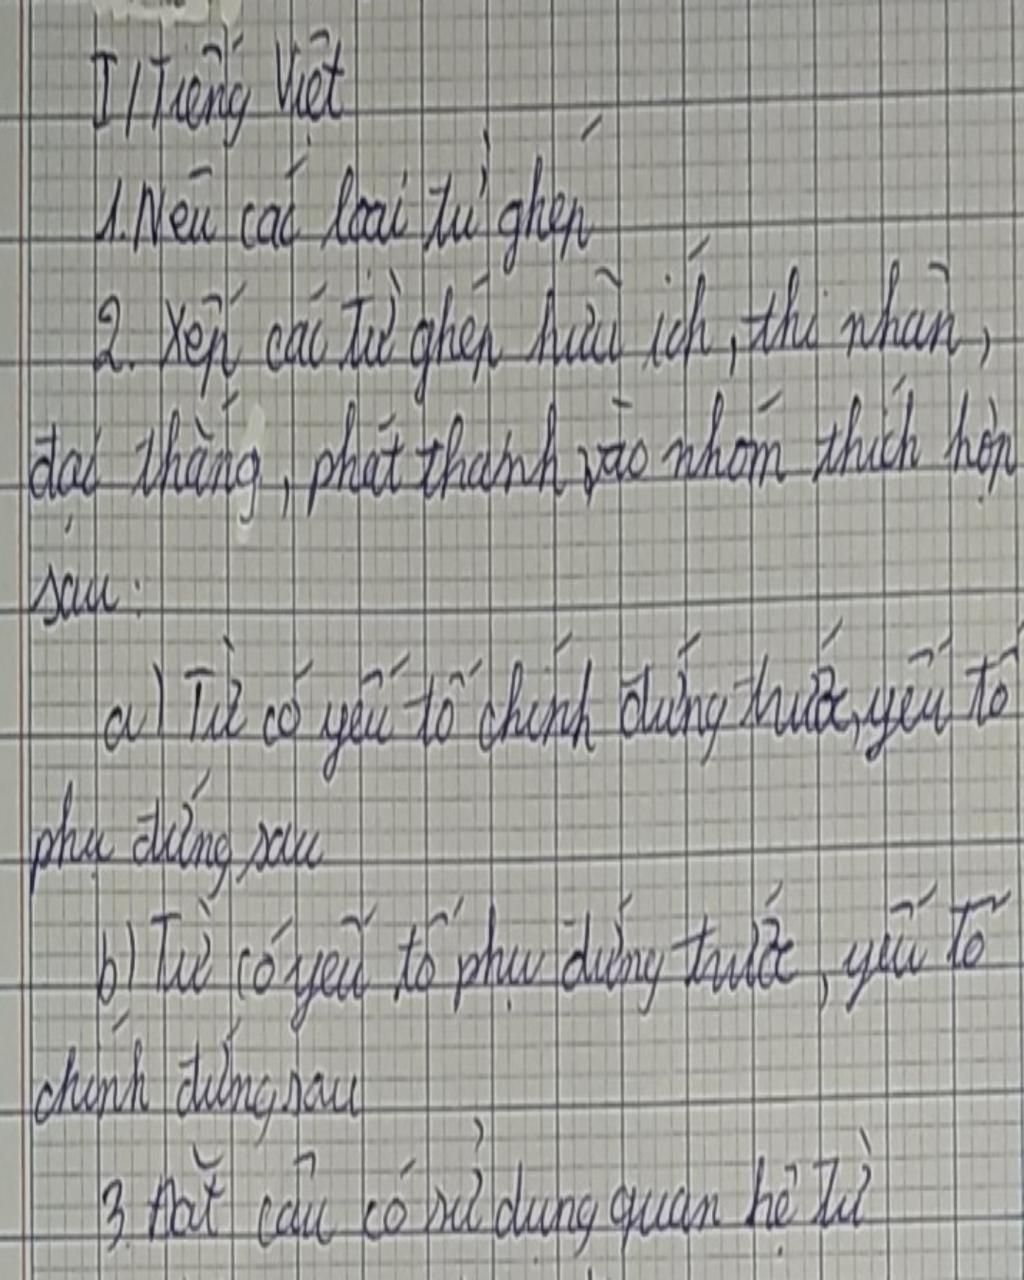 I/Tiếng Việt
1. Nêu các loại từ ghép
2. Xếp các từ ghép hữu ích, thi nhân,
đại thắng, phát thanh vào nhóm thích hợp
sau:
a) Từ có yếu tố chính đứng trước, yếu tố
phụ đứng sau
b) Từ có yếu tố phụ đứng trước, yếu tố
chính đứng sau
3. Đặt câu có sử dụng quan hệ từ